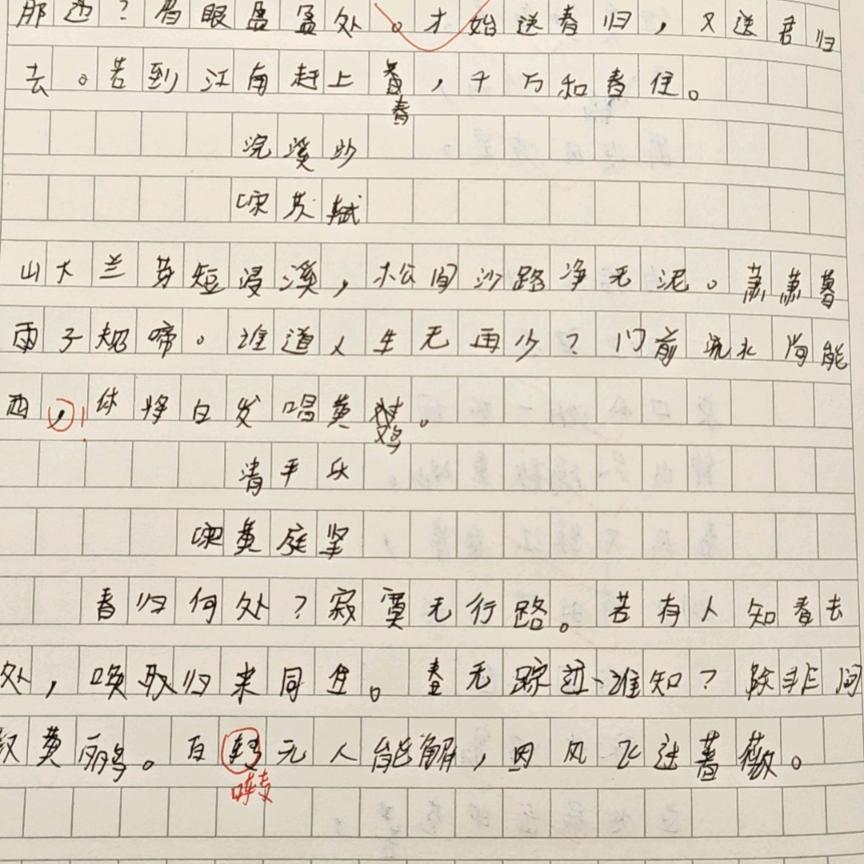 那边？眉眼盈盈处。才始送春归，又送君归
去。若到江南赶上春，千万和春住。
浣溪沙
宋苏轼
山大兰芽短浸溪，松间沙路净无泥。萧萧暮
雨子规啼。谁道人生无再少？门前流水尚能
西，！休将白发唱黄鸡。
清平乐
宋黄庭坚
春归何处？寂寞无行路。若有人知春去
处，唤取归来同住。春无踪迹、谁知？除非问
取黄鹂。百转无人能解，因风飞过蔷薇。
啭